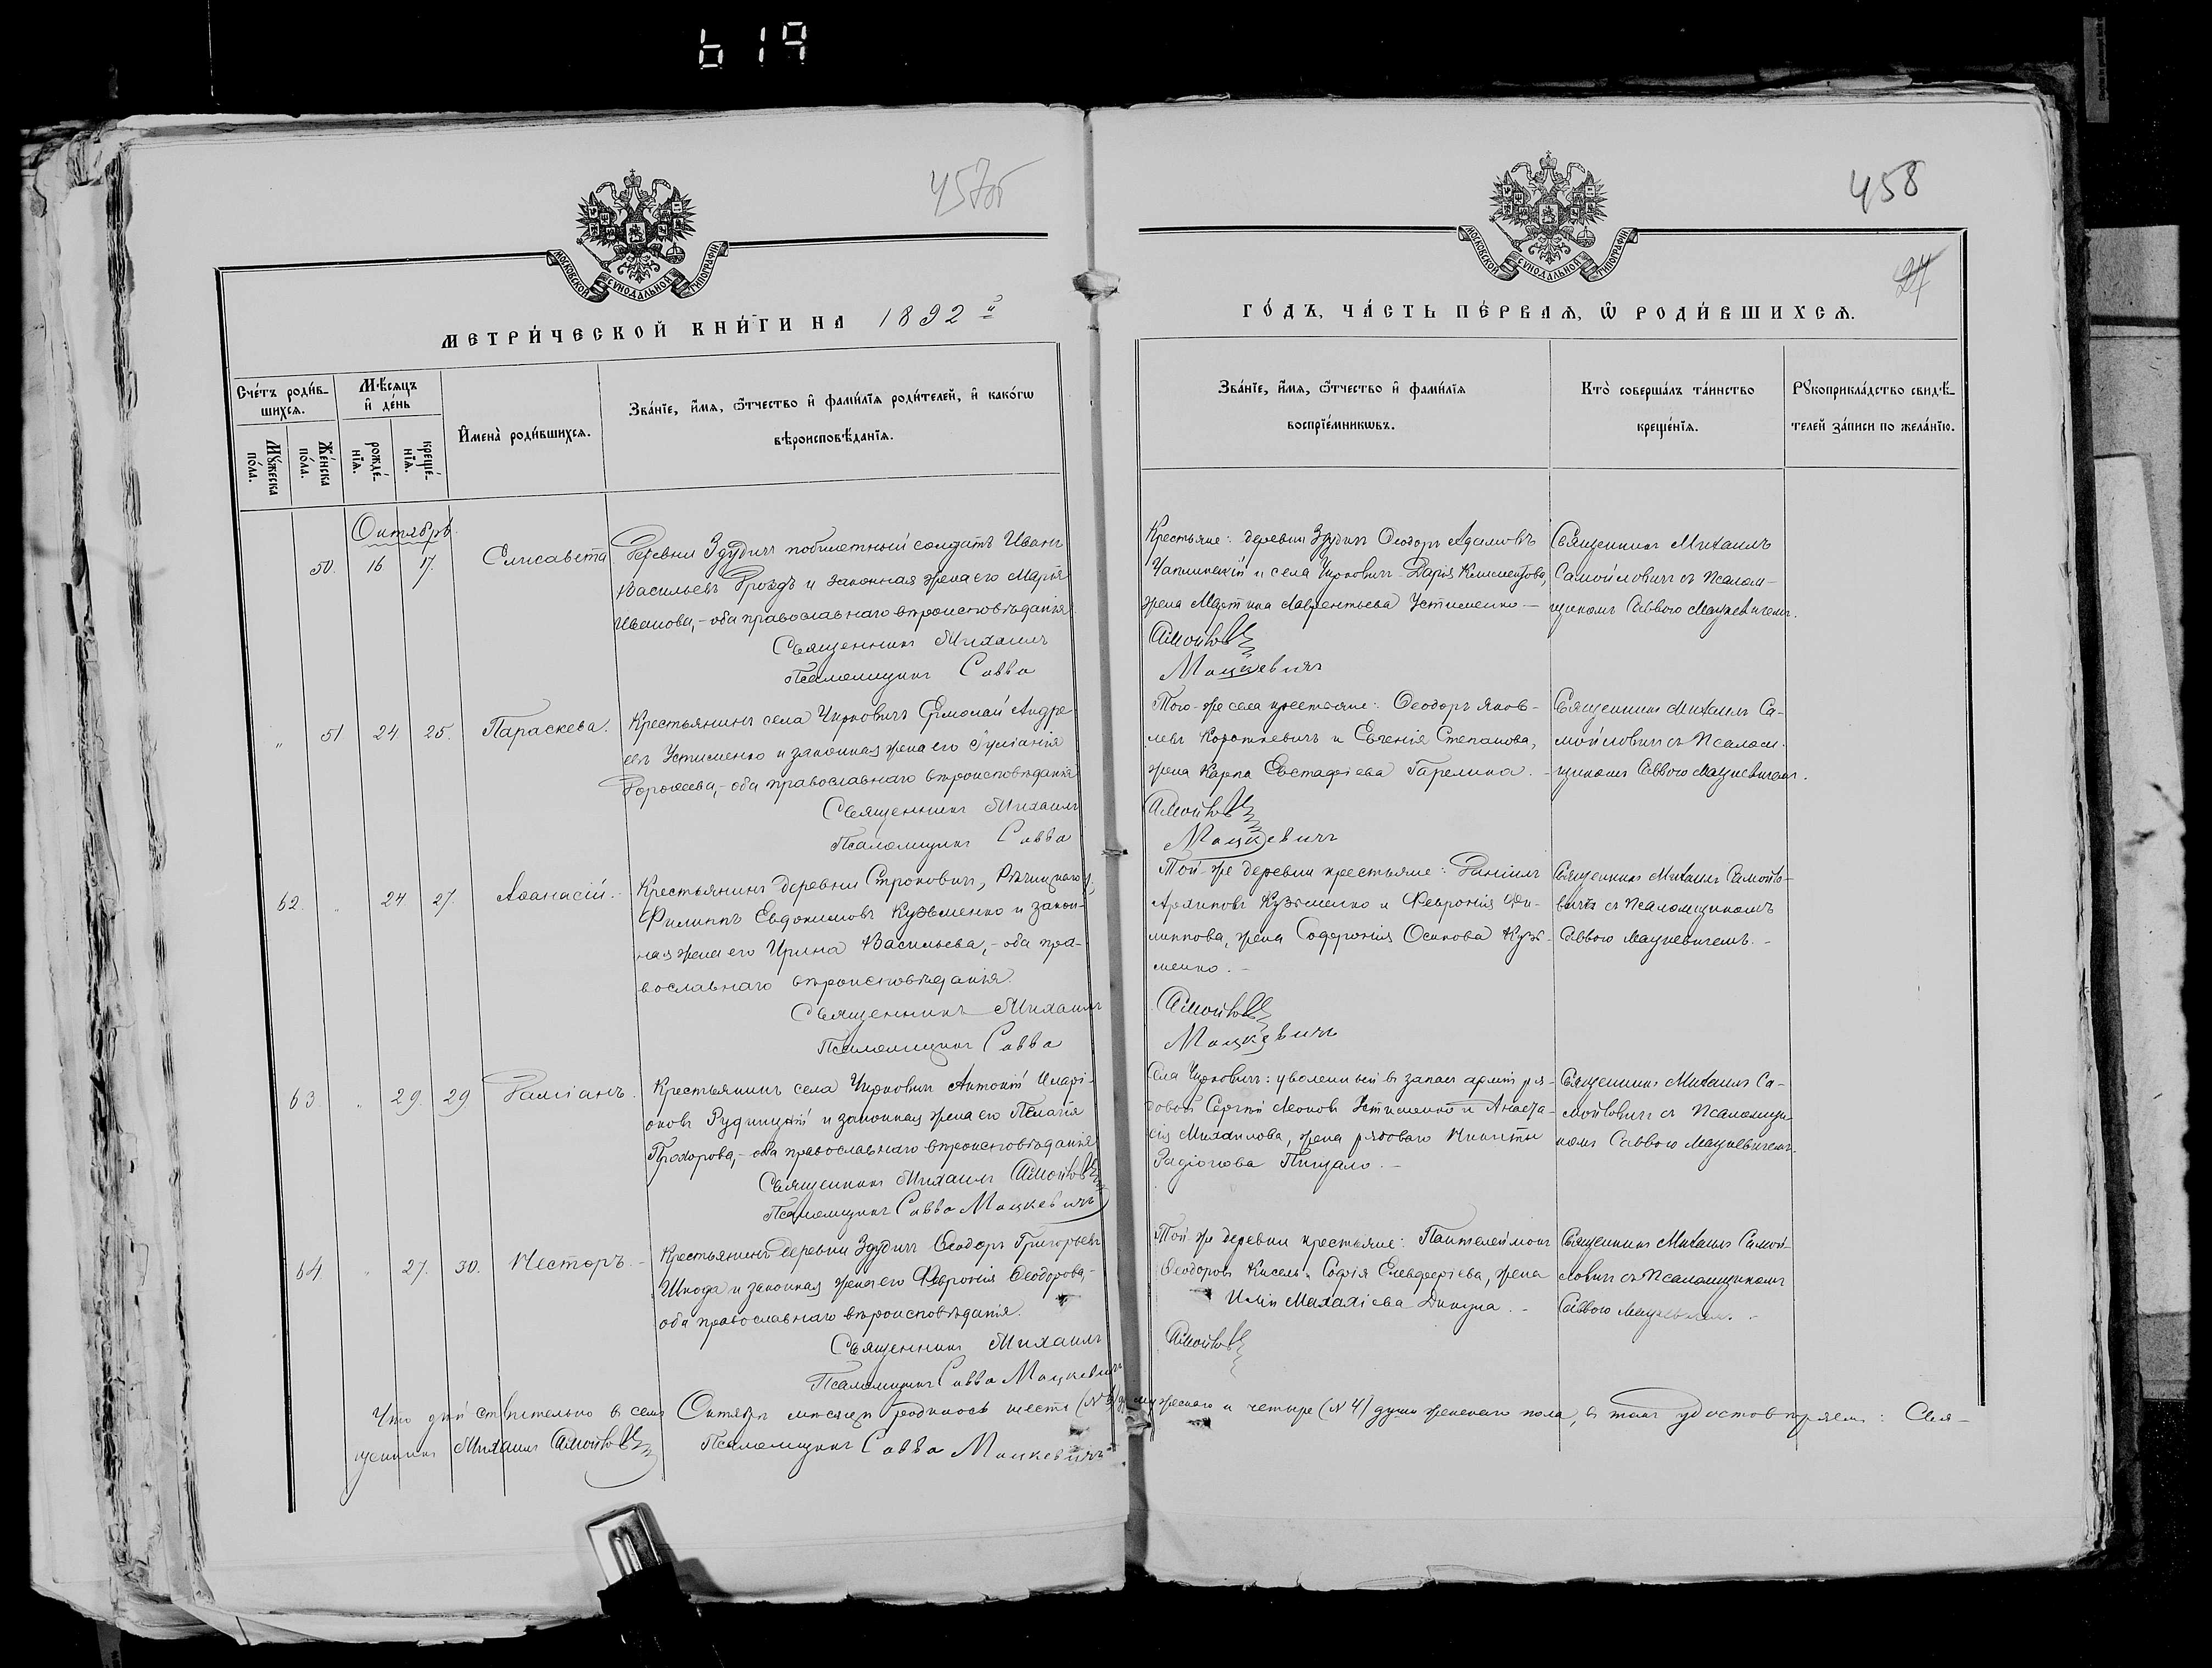 619
457об
458
27
МОСКОВСКОЙ СѴНОДАЛЬНОЙ ТИПОГРАФІИ
МОСКОВСКОЙ СѴНОДАЛЬНОЙ ТИПОГРАФІИ
МЕТРИ́ЧЕСКОЙ КНИ́ГИ НА 1892 й
ГО́ДЪ, ЧА́СТЬ ПЕ́РВАѦ, Ѽ РОДИ́ВШИХСѦ.
Сче́тъ роди́в-
шихсѧ.
Мꙋ́жеска по́ла.
Же́нска по́ла.
Мѣ́сѧцъ и҆ де́нь
рожде́-нїѧ.
креще́-нїѧ.
И҆мена̀ роди́вшихсѧ.
Зва́нїе, и҆́мѧ, ѻ҆́тчество и҆ фами́лїѧ роди́телей, и҆ како́гѡ
вѣроисповѣ́данїѧ.
Зва́нїе, и҆́мѧ, ѻ҆́тчество и҆ фами́лїѧ
воспрїе́мникѡвъ.
Кто̀ соверша́лъ та́инство
креще́нїѧ.
Рꙋкоприкла́дство свидѣ́-
телей за́писи по жела́нїю.
Октябрь.
50. 16 17. Елисавета
Деревни Здудичъ побилетный солдатъ Иванъ
Васильевъ Дроздъ и законная жена его Марія
Иванова,- оба православнаго вѣроисповѣданія
Священникъ Михаилъ
Псаломщикъ Савва
Крестьяне: деревни Здудичъ Ѳеодоръ Адамовъ
Чаплинскій и села Чирковичъ Дарія Климентова,
жена Мартина Лаврентьева Устименко —
Самойлов
Мацкевичъ
Священникъ Михаилъ
Самойловичъ съ Псалом-
щикомъ Саввою Мацкевичемъ.
" 51 24 25. Параскева.
Крестьянинъ села Чирковичъ Ермолай Андре-
евъ Устименко и законная жена его Іуліанія
Дороѳеева,- оба православнаго вѣроисповѣданія
Священникъ Михаилъ
Псаломщикъ Савва
Того-же села крестьяне: Ѳеодоръ Яков-
левъ Короткевичъ и Евгенія Степанова,
жена Карпа Евстафіева Гарелика. -
Самойлов
Мацкевичъ
Священникъ Михаилъ Са-
мойловичъ съ Псалом-
щикомъ Саввою Мацкевичемъ.
62. " 24 27. Аѳанасій.
Крестьянинъ деревни Строковичъ, Рѣчицкаго у,
Филиппъ Евдокимовъ Кузьменко и закон-
ная жена его Ирина Васильева,- оба пра-
вославнаго вѣроисповѣданія.
Священникъ Михаилъ
Псаломщикъ Савва
Той-же деревни крестьяне: Даніилъ
Архиповъ Кузьменко и Февронія Фи-
липпова, жена Софронія Осипова Кузь-
менко. -
Самойлов
Мацкевичъ
Священникъ Михаилъ Самойло-
вичъ съ Псаломщикомъ
Саввою Мацкевичемъ. -
63. " 29. 29. Даміанъ.
Крестьянинъ села Чирковичъ Антоній Иларі-
оновъ Рудницкій и законная жена его Пелагія
Прохорова,- оба православнаго вѣроисповѣданія
Священникъ Михаилъ Самойлов
Псаломщикъ Савва Мацкевичъ
Села Чирковичъ: уволенный въ запасъ арміи ря-
довой Сергій Леоновъ Устименко и Анаста-
сія Михаилова, жена рядоваго Никиты
Радіонова Пищало. -
Священникъ Михаилъ Са-
мойловичъ съ Псаломщи-
комъ Саввою Мацкевичемъ.
64. " 27. 30. Несторъ. -
Крестьянинъ деревни Здудичъ Ѳеодоръ Григорьевъ
Шкода и законная жена его Февронія Ѳеодорова,-
оба православнаго вѣроисповѣданія.
Священникъ Михаилъ
Псаломщикъ Савва Мацкевичъ
Той-же деревни крестьяне: Пантелеймонъ
Ѳеодоровъ Кисель и Софія Елевферіева, жена
Иліи Малахіева Дикуна. -
Самойлов
Священникъ Михаилъ Самой-
ловичъ съ Псаломщикомъ
Саввою Мацкевичемъ. -
Что дѣйствительно въ семъ Октябрѣ мѣсяцѣ родилось шесть (№ 6) д. мужескаго и четыре (№ 4) души женскаго пола, въ томъ удостовѣряемъ: Свя-
щенникъ Михаилъ Самойлов Псаломщикъ Савва Мацкевичъ